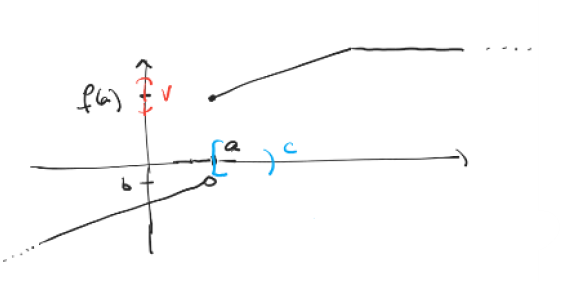 f(a)
V
a
c
b